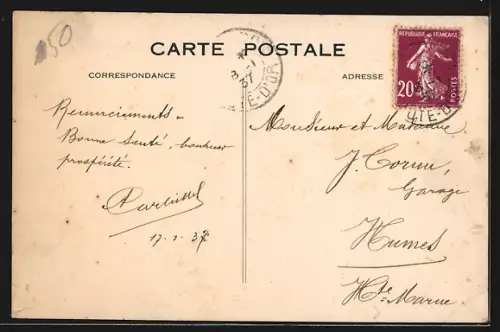 50
CARTE POSTALE
CORRESPONDANCE
ADRESSE
RÉPUBLIQUE FRANÇAISE
20
POSTES
3 -1
37
CÔTE-D'OR
Remerciements -
Bonne Santé, bonheur
prospérité.
Monsieur et Madame
J. Cornu,
Garage
Humes
Hte Marne